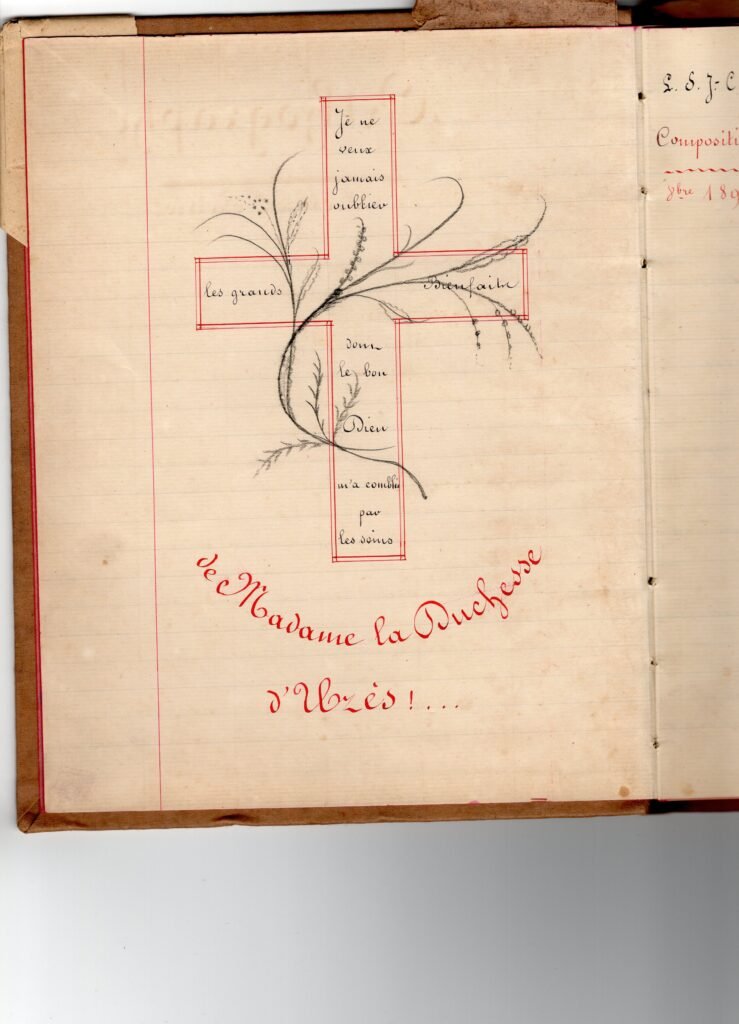 Je ne
veux
jamais
oublier
les grands Bienfaits
dont
le bon
Dieu
m'a comblé
par
les soins
de Madame la Duchesse
d'Uzès !....
L. S. J-C
Compositi
8bre 189